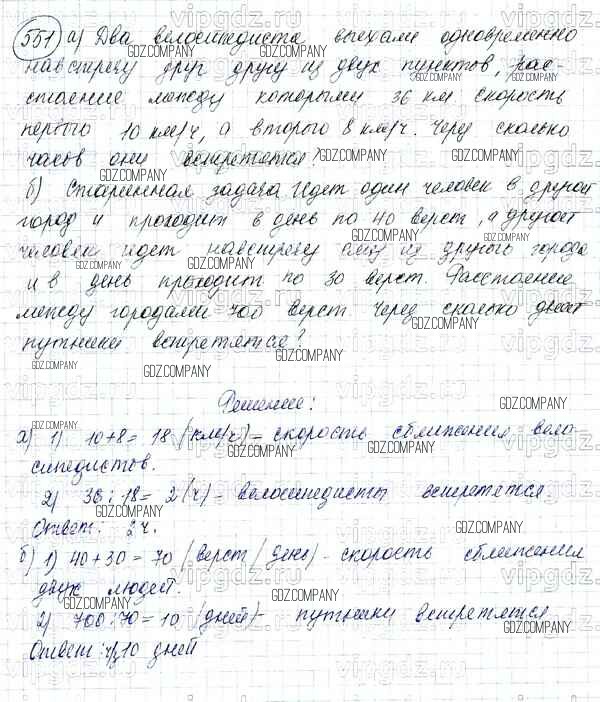 551 а) Два велосипедиста выехали одновременно
навстречу друг другу из двух пунктов, рас-
стояние между которыми 36 км. Скорость
первого 10 км/ч, а второго 8 км/ч. Через сколько
часов они встретятся?
б) Старинная задача. Идет один человек в другой
город и проходит в день по 40 верст, а другой
человек идет навстречу ему из другого города
и в день проходит по 30 верст. Расстояние
между городами 700 верст. Через сколько дней
путники встретятся?
Решение:
а) 1) 10+8= 18 (км/ч) - скорость сближения вело-
сипедистов.
2) 36 : 18 = 2 (ч) - велосипедисты встретятся.
Ответ: 2 ч.
б) 1) 40+30 = 70 (верст/день) - скорость сближения
двух людей.
2) 700:70 = 10 (дней) - путники встретятся
Ответ: 10 дней
GDZ.COMPANY
vipgdz.ru